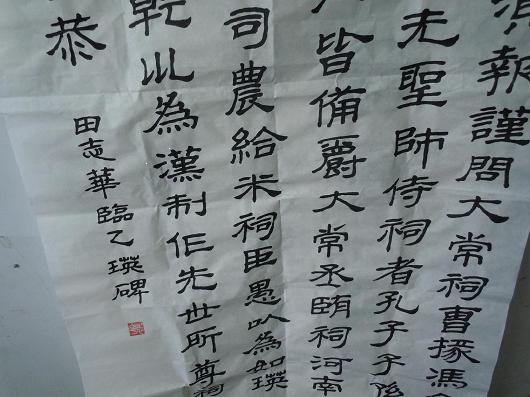 報謹問大常祠曹掾馮
先聖師侍祠者孔子子孫
皆備爵大常丞監祠河南
司農給米祠臣愚以為如瑛
乾巛為漢制作先世所尊祠
恭
田志華臨乙瑛碑